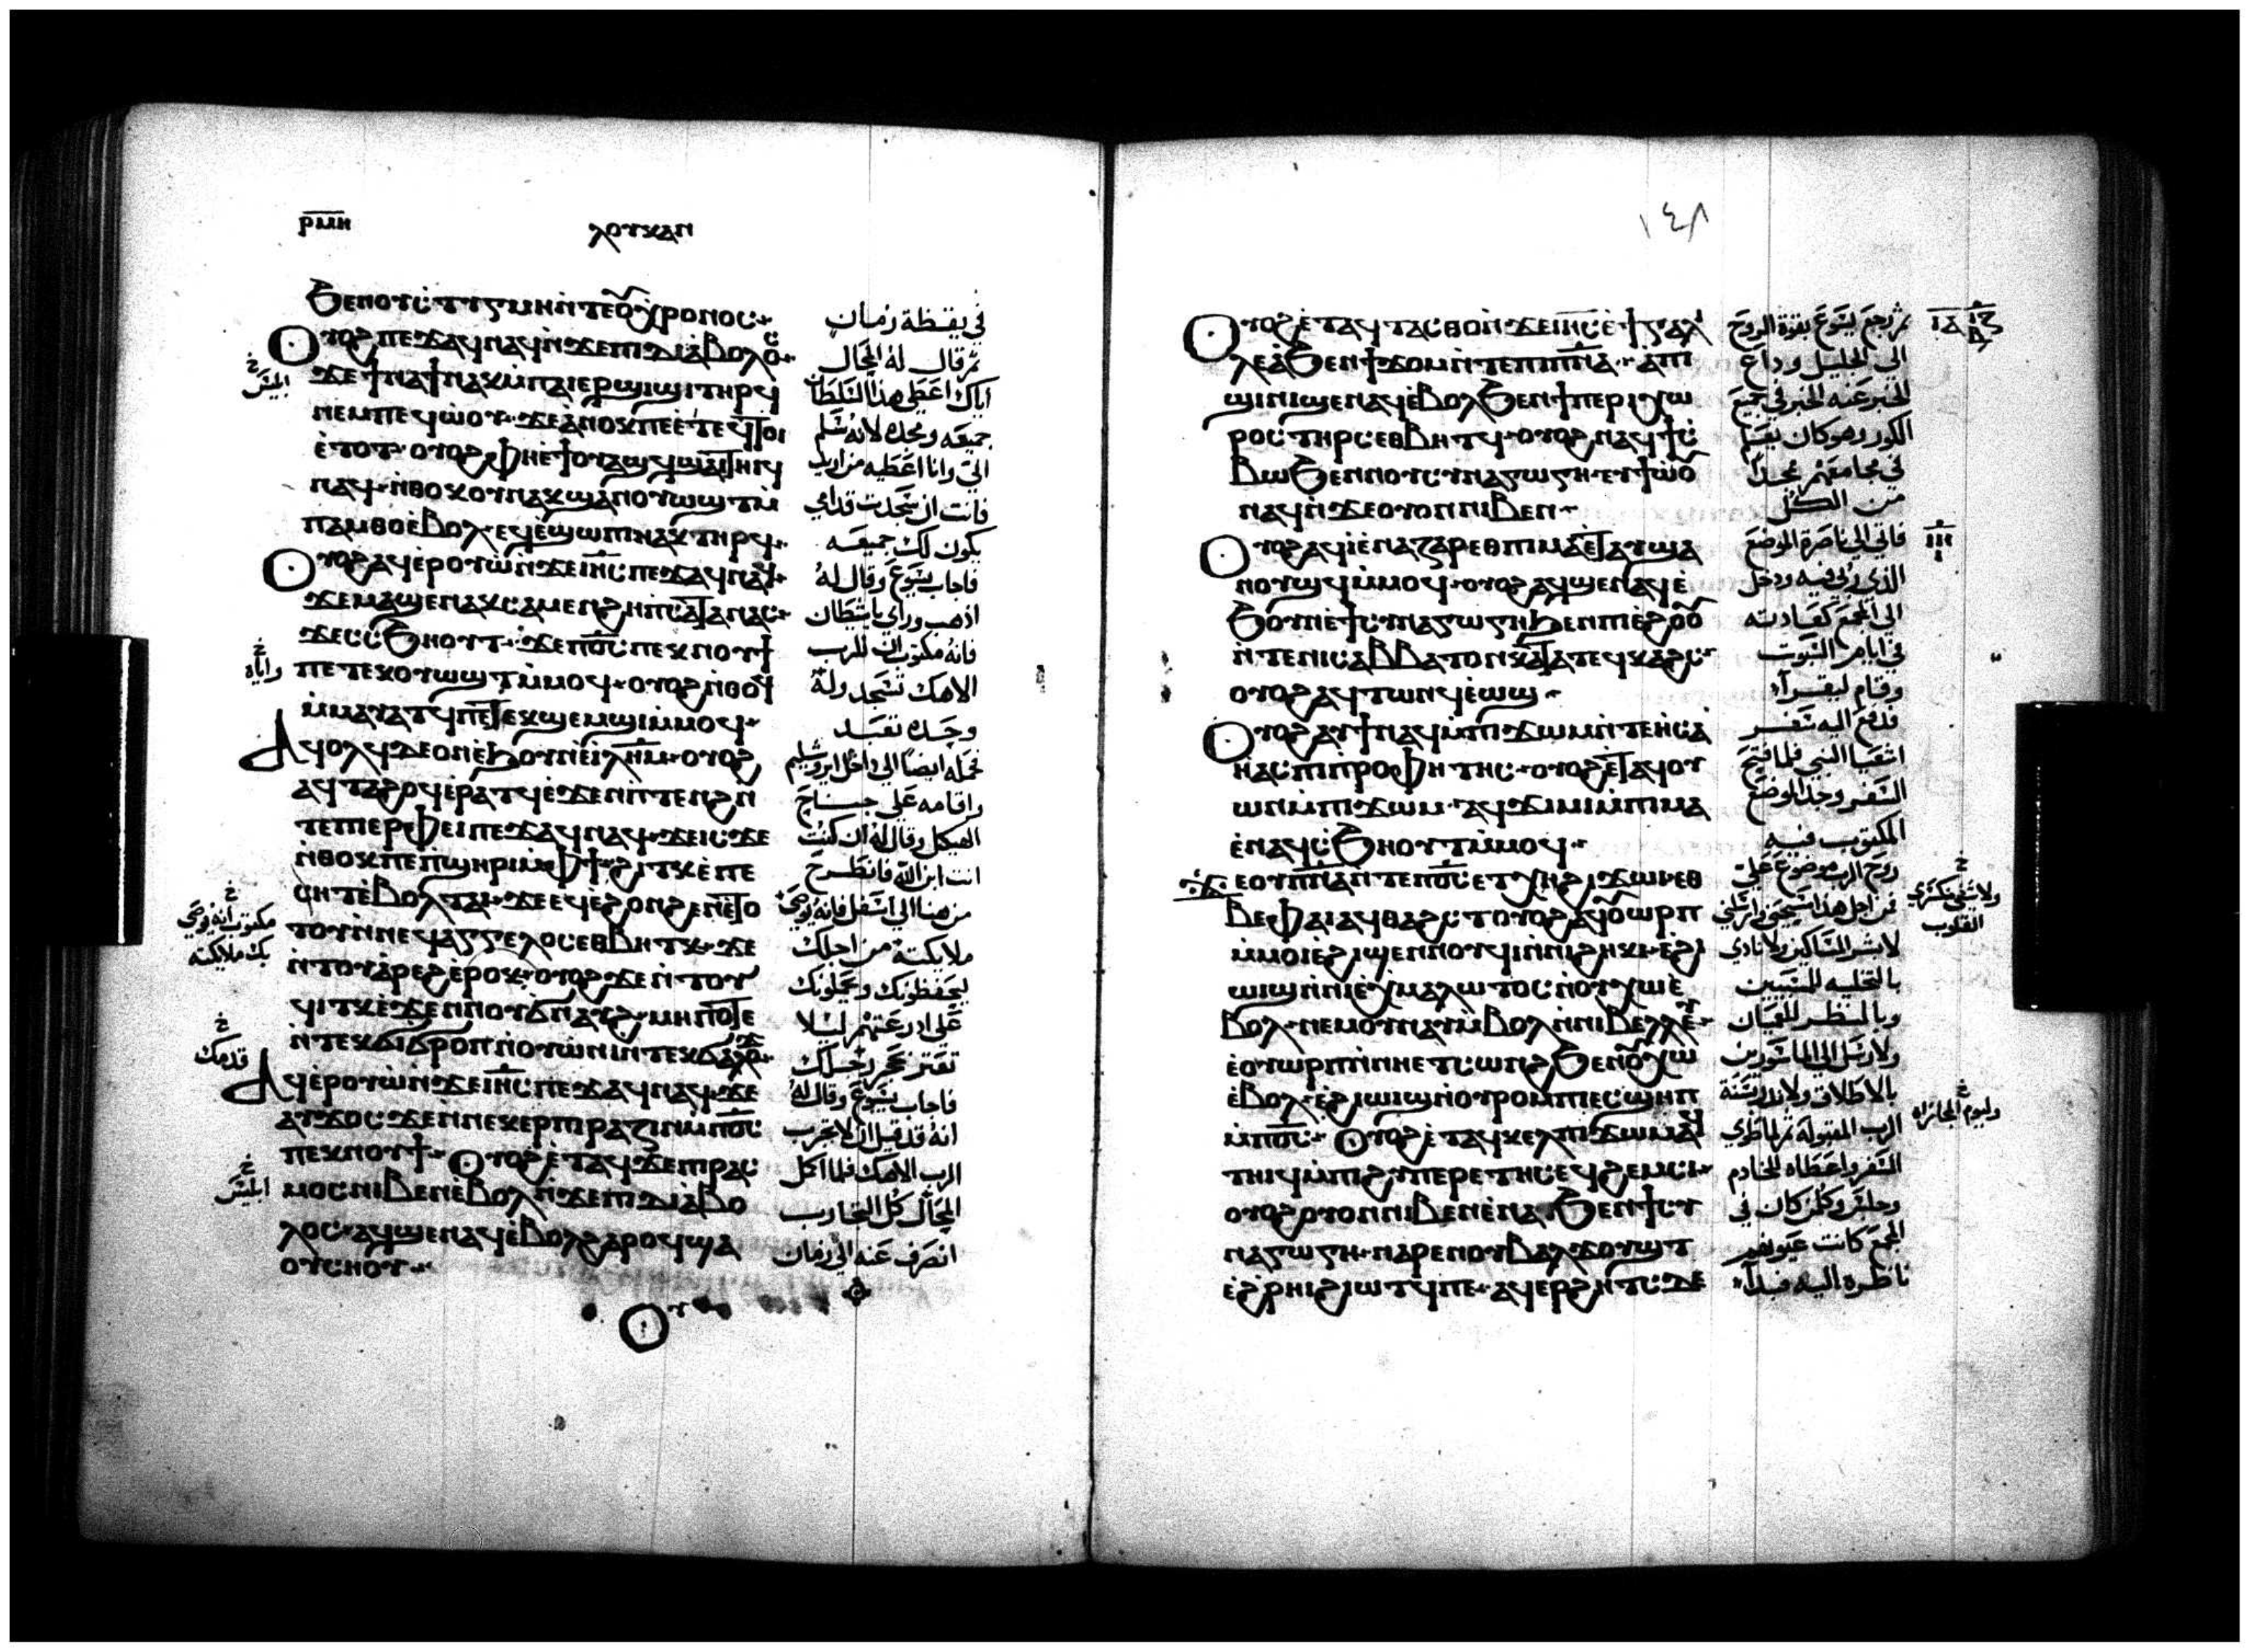 ⲣⲙⲏ
ⲗⲟⲩⲕⲁⲛ
ϧⲉⲛⲟⲩⲥⲧⲓⲅⲙⲏⲛ̀ⲧⲉⲟⲩⲭⲣⲟⲛⲟⲥ
ⲟⲩⲟϩⲡⲉϫⲁϥⲛⲁϥⲛ̀ϫⲉⲡⲓⲇⲓⲁ̀ⲃⲟⲗⲟⲥ
ϫⲉϯⲛⲁϯⲛⲁⲕⲙ̀ⲡⲁⲓⲉⲣϣⲓϣⲓⲧⲏⲣϥ
ⲛⲉⲙⲡⲉϥⲱ̀ⲟⲩ ϫⲉⲁ̀ⲛⲟⲕⲡⲉⲉ̀ⲧⲉⲩⲧⲟⲓ
ⲉ̀ⲧⲟⲧ ⲟⲩⲟϩⲫⲏⲉ̀ϯⲟⲩⲁϣϥ ϣⲁⲓⲧⲏⲓϥ
ⲛⲁϥ ⲛ̀ⲑⲟⲕⲟⲩⲛⲁⲕϣⲁⲛⲟⲩⲱϣⲧⲙ̀
ⲡⲁⲙⲑⲟⲉ̀ⲃⲟⲗ ⲉϥⲉ̀ϣⲱⲡⲓⲛⲁⲕⲧⲏⲣϥ
ⲟⲩⲟϩⲁϥⲉ̀ⲣⲟⲩⲱ̀ⲛ̀ϫⲉⲓⲏ̅ⲥ̅ⲡⲉϫⲁϥⲛⲁϥ
ϫⲉⲙⲁϣⲉⲛⲁⲕⲥⲁⲙⲉⲛϩⲏⲓⲡⲥⲁⲧⲁⲛⲁⲥ
ϫⲉⲥⲥϧⲏⲟⲩⲧ ϫⲉⲡⲟ̅ⲥ̅ⲡⲉⲕⲛⲟⲩϯ
ⲡⲉⲧⲉⲕⲟⲩⲱϣⲧⲙ̀ⲙⲟϥ ⲟⲩⲟϩⲛ̀ⲑⲟϥ
ⲙ̀ⲙⲁⲩⲁⲧϥⲡⲉⲧⲉⲕϣⲉⲙϣⲓⲙ̀ⲙⲟϥ
ⲁϥⲟⲗϥⲇⲉⲟⲛⲉ̀ϧⲟⲩⲛⲉ̀ⲓ̀ⲗ̅ⲏ̅ⲙ̅ ⲟⲩⲟϩ
ⲁϥⲧⲁϩⲟϥⲉ̀ⲣⲁⲧϥⲉ̀ϫⲉⲛⲡⲧⲉⲛϩⲛ
ⲧⲉⲡⲓⲉⲣⲫⲉⲓⲡⲉϫⲁϥⲛⲁϥ ϫⲉⲓⲥϫⲉ
ⲛ̀ⲑⲟⲕⲡⲉⲡ̀ϣⲏⲣⲓⲙ̀ⲫϯ ϩⲓⲧⲕⲉ̀ⲡⲉ
ⲥⲏⲧⲉ̀ⲃⲟⲗⲧⲁⲓ ϫⲉⲉϥⲉ̀ϩⲟⲛϩⲉⲛⲉ̀ⲧⲟ
ⲧⲟⲩⲛ̀ⲛⲉϥⲁⲅⲅⲉⲗⲟⲥⲉⲑⲃⲏⲧⲕ ϫⲉ
ⲛ̀ⲧⲟⲩⲁ̀ⲣⲉϩⲉ̀ⲣⲟⲕ ⲟⲩⲟϩϫⲉⲛⲧⲟⲩ
ϥⲓⲧⲕⲉ̀ϫⲉⲛⲛⲟⲩϭⲛⲁⲩϩ ⲙⲏⲡⲟⲧⲉ
ⲛ̀ⲧⲉⲕϭⲓϭⲣⲟⲡⲛ̀ⲟⲩⲱ̀ⲛⲓⲛⲧⲉⲕϭⲁⲗⲟϫ
ⲁϥⲉ̀ⲣⲟⲩⲱ̀ⲛ̀ϫⲉⲓⲏ̅ⲥ̅ⲡⲉϫⲁϥⲛⲁϥ ϫⲉ
ⲁⲩϫⲟⲥ ϫⲉⲛⲛⲉⲕⲉⲣⲡⲓⲣⲁⲍⲓⲛⲙ̀ⲡⲟ̅ⲥ̅
ⲡⲉⲕⲛⲟⲩϯ ⲟⲩⲟϩⲉ̀ⲧⲁϥϫⲉⲕⲡⲓⲣⲁⲥ
ⲙⲟⲥⲛⲓⲃⲉⲛⲉ̀ⲃⲟⲗⲛ̀ϫⲉⲡⲓⲇⲓⲁ̀ⲃⲟ
ⲗⲟⲥ ⲁϥϣⲉⲛⲁϥⲉ̀ⲃⲟⲗϩⲁⲣⲟϥϣⲁ
ⲟⲩⲥⲏⲟⲩ
ⲟⲩ
في يقظة زمان
ثم قال له المحال
اياك اعطي هذا السلطان
جميعه ومجده لانه سلم
الي وانا اعطيه من اريد
فانت ان سجدت قدامي
يكون لك جميعه
فاجاب يسوع وقال له
اذهب وراي ياشيطان
فانه مكتوب ان للرب
الاهك تسجد وله
وحده تعبد
فحمله ايضا الي داخل ايروشليم
واقامه علي جناح
الهيكل وقال له ان كنت
انت ابن الله فانطرح
من هنا الي اسفل فانه يوصي
ملايكته من اجلك
ليحفظونك ويحملونك
علي اذرعتهم ليلا
تعثر بحجر رجلك
فاجاب يسوع وقال له
انه قد قيل ان لا تجرب
الرب الاهك فلما اكمل
المحال كل التجارب
انصرف عنه الي زمان
ابليس
واياه
مكتوب انه يوصي
بك ملايكته
قدمك
ابليس
١٤٨
ⲟⲩⲟϩⲉ̀ⲧⲁϥⲧⲁⲥⲑⲟⲛ̀ϫⲉⲓⲏ̅ⲥ̅ⲉ̀ϯⲅⲁⲗⲓ
ⲗⲉⲁ̀ϧⲉⲛϯϫⲟⲙⲛ̀ⲧⲉⲡⲓⲡ̅ⲛ̅ⲁ̅ ⲁⲡⲓ
ϣⲓⲛⲓϣⲉⲛⲁϥⲉ̀ⲃⲟⲗϧⲉⲛϯⲡⲉⲣⲓⲭⲱ
ⲣⲟⲥⲧⲏⲣⲥⲉⲑⲃⲏⲧϥ ⲟⲩⲟϩⲛⲁϥϯⲥ̀
ⲃⲱϧⲉⲛⲛⲟⲩⲥⲩⲛⲁⲅⲱⲅⲏ ⲉⲩϯⲱ̀ⲟⲩ
ⲛⲁϥⲛ̀ϫⲉⲟⲩⲟⲛⲛⲓⲃⲉⲛ
ⲟⲩⲟϩⲁϥⲓ̀ⲉ̀ⲛⲁⲍⲁⲣⲉⲑⲡⲓⲙⲁⲉ̀ⲧⲁⲩϣⲁ
ⲛⲟⲩϣϥⲙ̀ⲙⲟϥ ⲟⲩⲟϩⲁϥϣⲉⲛⲁϥⲉ̀
ϧⲟⲩⲛⲉ̀ϯⲥⲩⲛⲁⲅⲱⲅⲏϧⲉⲛⲡⲓⲉ̀ϩⲟⲟⲩ
ⲛ̀ⲧⲉⲛⲓⲥⲁⲃⲃⲁⲧⲟⲛⲕⲁⲧⲁⲧⲉϥⲕⲁϩⲥ
ⲟⲩⲟϩⲁϥⲧⲱⲛϥⲉ̀ⲱϣ
ⲟⲩⲟϩⲁⲩϯⲛⲁϥⲙ̀ⲡⲓϫⲱⲙⲛ̀ⲧⲉⲏⲥⲁ
ⲏ̀ⲁⲥⲡⲓⲡⲣⲟⲫⲏⲧⲏⲥ ⲟⲩⲟϩⲉ̀ⲧⲁϥⲟⲩ
ⲱⲛⲙ̀ⲡⲓϫⲱⲙ ⲁϥϫⲓⲙⲓⲙ̀ⲡⲓⲙⲁ
ⲉ̀ⲛⲁϥⲥ̀ϧⲏⲟⲩⲧⲙ̀ⲙⲟϥ
ϫⲉⲟⲩⲡ̅ⲛ̅ⲁ̅ⲛ̀ⲧⲉⲡⲟ̅ⲥ̅ⲉⲧⲭⲏϩⲓϫⲱⲓⲉⲑ
ⲃⲉⲫⲁⲓⲁϥⲑⲁϩⲥⲧⲟⲩⲟϩⲁϥⲟⲩⲱⲣⲡ
ⲙ̀ⲙⲟⲓⲉ̀ϩⲓϣⲉⲛⲛⲟⲩϥⲓⲛ̀ⲛⲓϩⲏⲕⲓ ⲉ̀ϩⲓ
ϣⲓϣⲛ̀ⲛⲓⲉ̀ⲭⲙⲁⲗⲱⲧⲟⲥⲛ̀ⲟⲩⲭⲱⲉ̀
ⲃⲟⲗ ⲛⲉⲙⲟⲩⲛⲁⲩⲙ̀ⲃⲟⲗⲛ̀ⲛⲓⲃⲉⲗⲗⲉⲩ
ⲉ̀ⲟⲩⲱⲣⲡⲛ̀ⲛⲏⲉⲧⲥⲱⲛϩϧⲉⲛⲟⲩⲭⲱ
ⲉ̀ⲃⲟⲗ ⲉ̀ϩⲓⲱⲓϣⲛ̀ⲟⲩⲣⲟⲙⲡⲓⲉⲥϣⲏⲡ
ⲙ̀ⲡⲟ̅ⲥ̅ ⲟⲩⲟϩⲉ̀ⲧⲁϥⲕⲉⲗⲡⲓϫⲱⲙⲁϥ
ⲧⲏⲓϥⲙ̀ⲡⲓϩⲩⲡⲉⲣⲉⲧⲏⲥⲉϥϩⲉⲙⲥⲓ
ⲟⲩⲟϩⲟⲩⲟⲛⲛⲓⲃⲉⲛⲉ̀ⲛⲁ ϧⲉⲛϯⲥⲩ
ⲛⲁⲅⲱⲅⲏ ⲛⲁⲣⲉⲛⲟⲩⲃⲁⲗϫⲟⲩϣⲧ
ⲉ̀ϩⲣⲏⲓϩⲓⲱⲧϥⲡⲉ ⲁϥⲉⲣϩⲏⲧⲥⲇⲉ
ثم رجع يسوع بقوة الروح
الي الجليل وذاع
الخبر عنه الخبر في جميع
الكور وهو كان يعلم
في مجامعهم ممجدا
من الكل
فاتي الي ناصرة الموضع
الذي ربي فيه ودخل
الي المجمع كعادته
في ايام السبوت
وقام ليقرا
فدفع اليه سفر
اشعيا النبي فلما فتح
السفر وجد الموضع
المكتوب فيه
روح الرب موضوع علي
من اجل هذا مسحني وارسلني
لابشر المساكين ولانادي
بالتخليه للمسبيين
وبالمنظر للعميان
ولارسل الي الماسورين
بالاطلاق ولانذر بسنة
الرب المقبولة ثم لما طوي
السفر واعطاه للخادم
وجلس وكل من كان في
المجمع كانت عيونهم
ناظره اليه فبدا
ولاشفي منكسري
القلوب